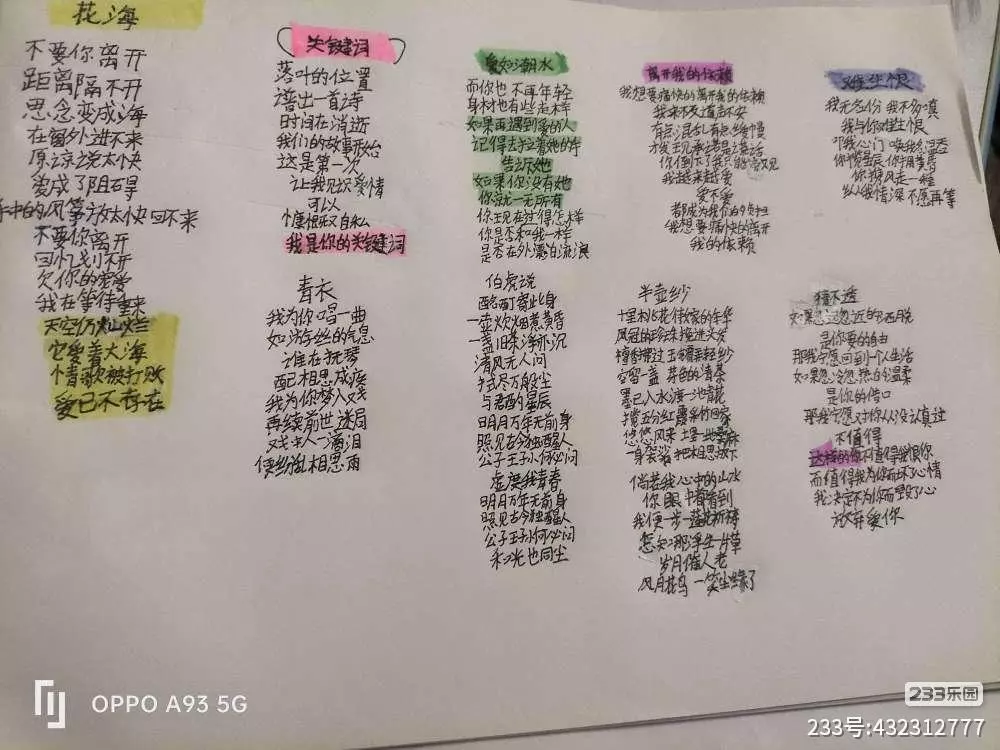 花海
不要你离开
距离隔不开
思念变成海
在窗外进不来
原谅说太快
爱成了阻碍
手中的风筝放太快回不来
不要你离开
回忆划不开
欠你的宠爱
我在等待重来
天空仍灿烂
它爱着大海
情歌被打败
爱已不存在
关键词
落叶的位置
谱出一首诗
时间在消逝
我们的故事开始
这是第一次
让我见识爱情
可以
慷慨又自私
我是你的关键词
爱如潮水
而你也不再年轻
身材也有些走样
如果再遇到爱的人
记得去拉着她的手
告诉她
如果你没有她
你就一无所有
你现在过得怎样
你是否和我一样
是否在外漂泊流浪
离开我的依赖
我想要痛快的离开我的依赖
我越来越爱
爱不爱
我想要痛快的离开
我的依赖
难生恨
我无名份我不多嗔
我与你难生恨
青衣
我为你唱一曲
如游丝的气息
谁在抚琴
配相思成疾
我为你梦入戏
再续前世迷局
戏中人一滴泪
便纷乱相思雨
伯虎说
酩酊寄此身
一壶炊烟煮黄昏
一盏旧朱净亦沉
清风无人问
拭尽万般尘
与君醉星辰
明月万年无前身
照见古今独醒人
公子王孙何必问
虚度我青春
明月万年无前身
照见古今独醒人
公子王孙何必问
和光也同尘
半壶纱
十里桃花待嫁的年华
凤冠的珍珠挽进头发
檀香拂过玉镯弄轻纱
空留一盏芽色的清茶
墨已入水渡一池青花
揽五分红霞采竹回家
悠悠风来
一身袈裟把相思放下
倘若我心中的山水
你眼中都看到
我便一步一莲花祈祷
怎知那浮生一片草
岁月催人老
风月花鸟一笑尘缘了
猜不透
如果忽远忽近的洒脱
是你要的自由
那我宁愿回到一个人生活
如果忽冷忽热的温柔
是你的借口
那我宁愿对你从没认真过
不值得
这样的你不值得我恨你
而值得我为你而坏了心情
我决定不为你而毁了心
放弃爱你
OPPO A93 5G
233乐园
233号:432312777